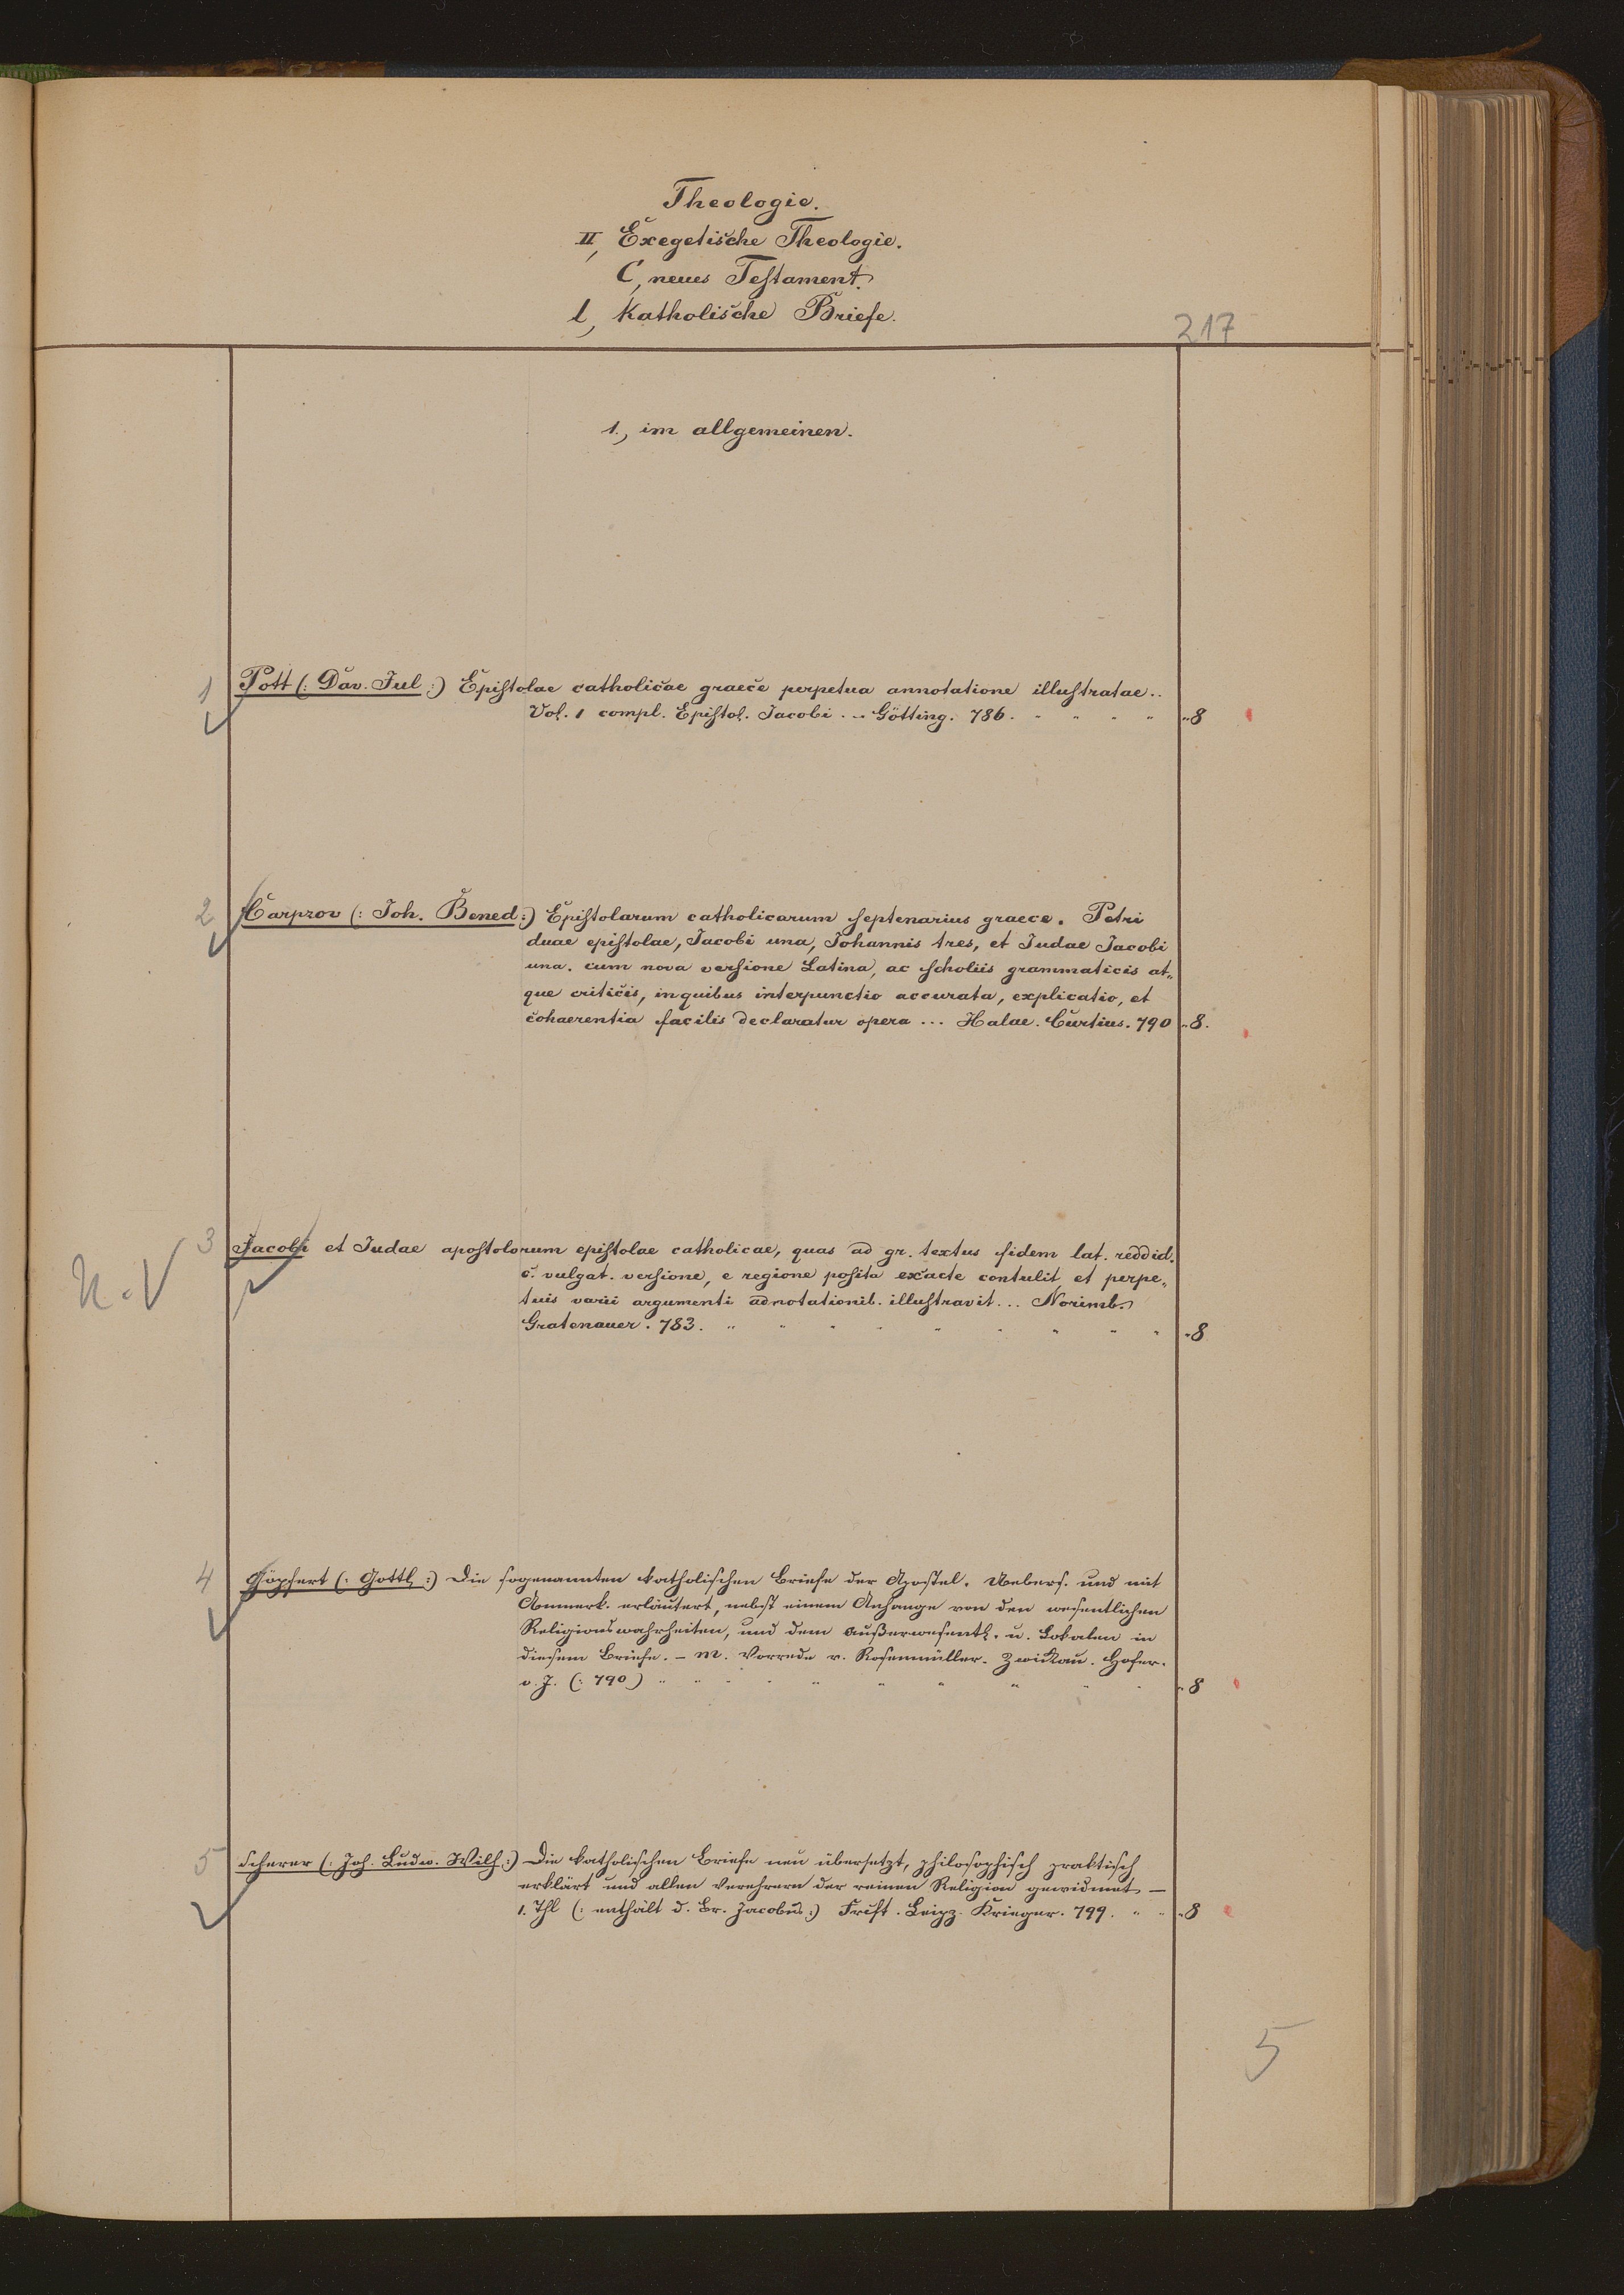 Theologie.
II, Exegetische Theologie.
C, neues Testament.
l, Katholische Briefe.
217
1., im allgemeinen.
1 Pott (: Dav. Jul :) Epistolae catholicae graece perpetua annotatione illustratae ..
Vol. 1 compl. Epistol. Jacobi ... Götting. 786. " " " " "8
2 Carpzov (: Joh. Bened :) Epistolarum catholicarum septenarius graece. Petri
duae epistolae, Jacobi una, Johannis tres, et Judae Jacobi
una. cum nova versione Latina, ac scholiis grammaticis at„
que criticis, in quibus interpunctio accurata, explicatio, et
cohaerentia facilis declaratur opera ... Halae. Curtius. 790 "8.
3 Jacobi et Judae apostolorum epistolae catholicae, quas ad gr. textus fidem lat. reddid.
N. V
c. vulgat. versione, e regione posita exacte contulit et perpe„
tuis varii argumenti adnotationib. illustravit ... Norimb.
Gratenauer. 783. " " " " " " " " " "8
4 Göpfert (: Gottl :) Die sogenannten katholischen Briefe der Apostel. Uebers. und mit
Anmerk. erläutert, nebst einem Anhange von den wesentlichen
Religionswahrheiten, und dem außerwesentl. u. Lokalen in
diesem Briefe. – m. Vorrede v. Rosenmüller. Zwickau. Hofer.
o. J. (: 790) " " " " " " " " " "8
5 Scherer (: Joh. Ludw. Wilh :) Die katholischen Briefe neu übersetzt, philosophisch praktisch
erklärt und allen Verehrern der reinen Religion gewidmet –
1. Thl (: enthält d. Br. Jacobus :) Frkft. Leipz. Krieger. 799. " " "8
5